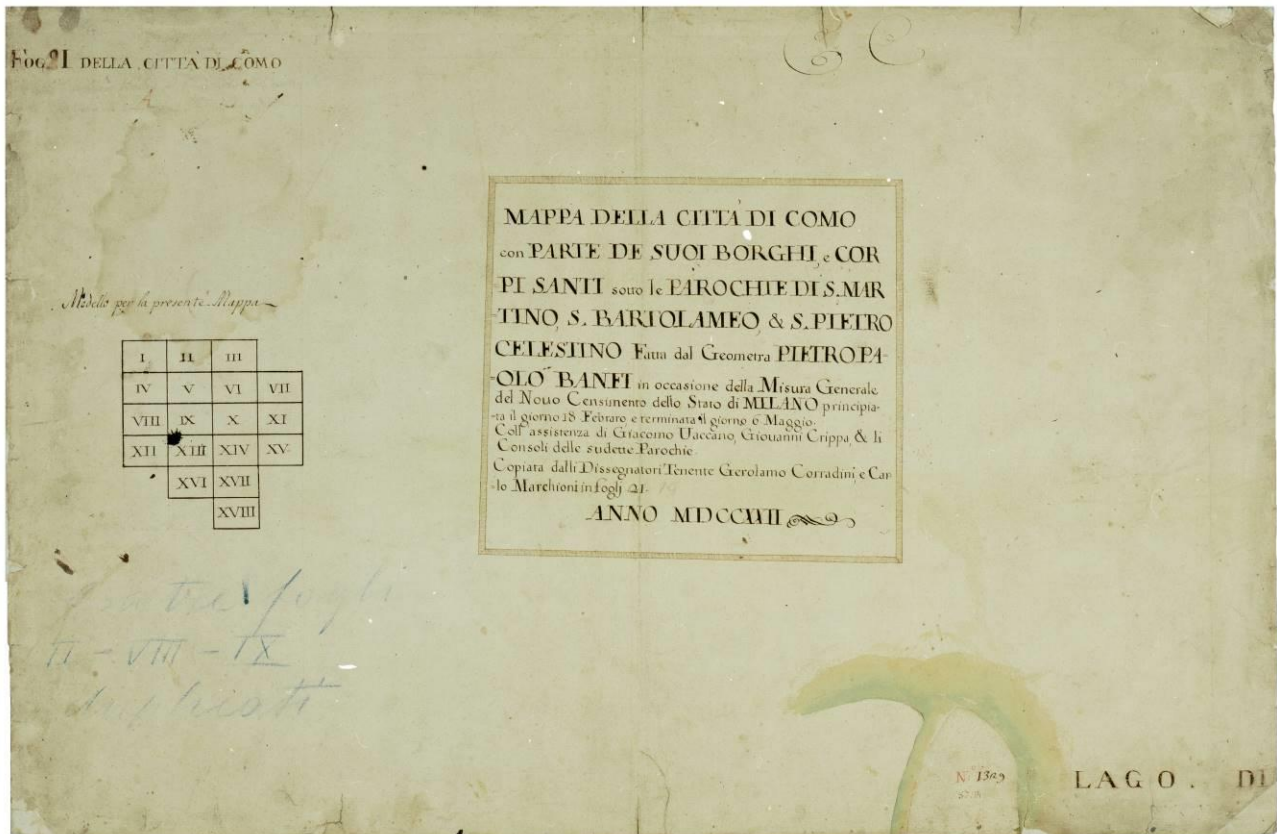 FOG.º I DELLA CITTÀ DI COMO
Modello per la presente Mappa
I II III
IV V VI VII
VIII IX X XI
XII XIII XIV XV
XVI XVII
XVIII
MAPPA DELLA CITTA DI COMO
con PARTE DE SUOI BORGHI, e COR
PI SANTI sotto le PAROCHIE DI S. MAR
-TINO, S. BARTOLAMEO, & S. PIETRO
CELESTINO Fatta dal Geometra PIETRO PA-
-OLO BANFI in occasione della Misura Generale
del Nouo Censimento dello Stato di MILANO principia-
-ta il giorno 18 Febraro e terminata il giorno 6 Maggio.
Coll' assistenza di Giacomo Uaccano, Giouanni Crippa, & li
Consoli delle sudette Parochie.
Copiata dalli Dissegnatori Tenente Gerolamo Corradini, e Car-
-lo Marchioni in fogli 21. 19
ANNO MDCCXXII
tre fogli
II - VIII - IX
duplicati
N. 1329
LAGO. DI